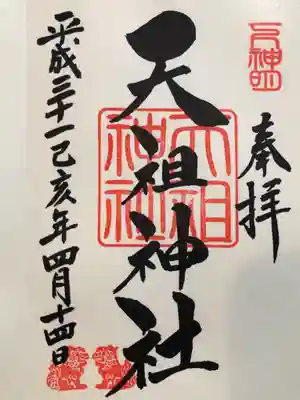 奉拝
天祖神社
天祖神社
平成三十一己亥年四月十四日